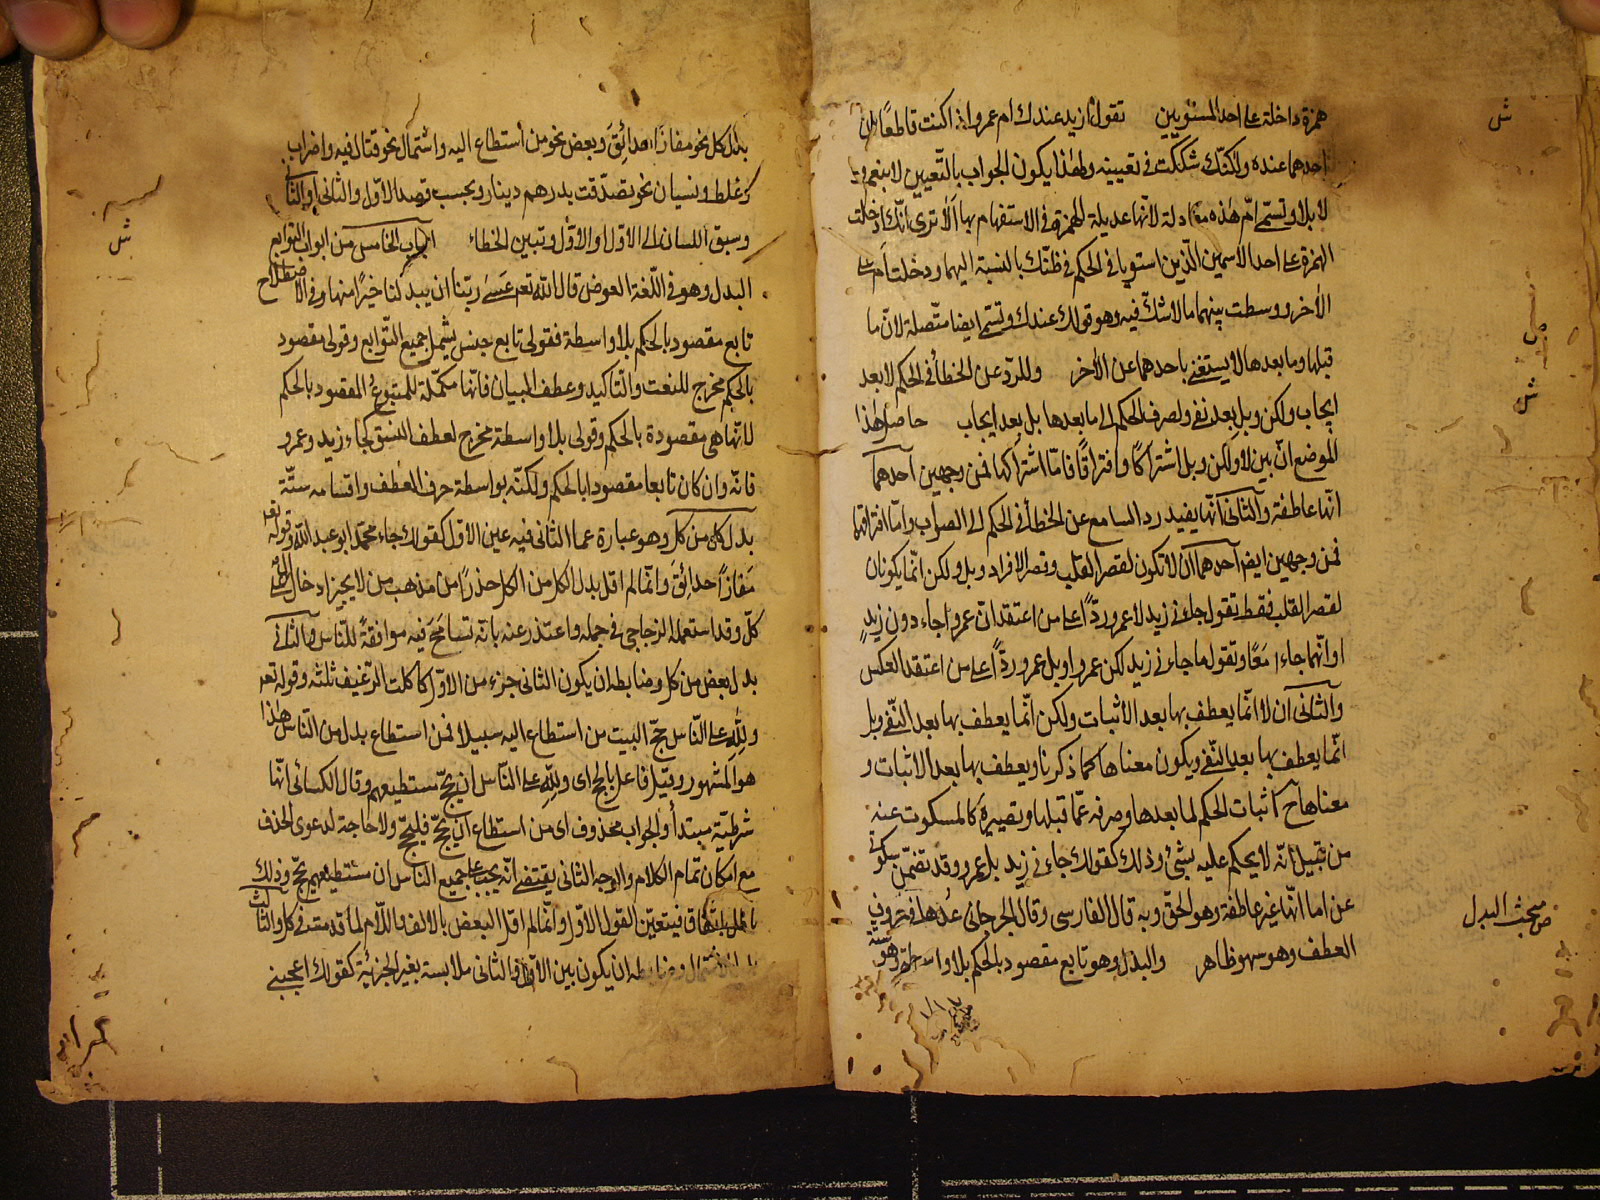 همزة داخلة على احد المستويين تقول ازيد عندك ام عمرو اذا كنت قاطعًا بان
احدهما عنده ولكنّك شككت في تعيينه ولهذا يكون الجواب بالتّعيين لا بنعم و
لا بلا وتسمّى ام هذه معادلة لانّها عديلة الهمزة في الاستفهام بها الا ترى انّك ادخلت
الهمزة على احد الاسمين الذين استويا في الحكم في ظنّك بالنسبة اليهما ودخلت ام على
الاخر ووسطت بينهما ما لا شكّ فيه وهو قولك عندك وتسمّى ايضا متّصلة لانّ ما
قبلها وما بعدها لا يستغنى باحدهما عن الاخر وللردّ عن الخطأ في الحكم لا بعد
ايجاب ولكن وبل بعد نفي ولصرف الحكم الى ما بعدها بل بعد ايجاب حاصل هذا
الموضع انّ بين لا ولكن وبل اشتراكًا وافتراقًا فامّا اشتراكها فمن وجهين احدهما
انّها عاطفة والثاني انّها يفيد رد السامع عن الخطأ في الحكم الى الصواب وامّا افتراقها
فمن وجهين ايضا احدهما ان لا تكون لقصر القلب وقصر الافراد وبل ولكن انّما يكونان
لقصر القلب فقط تقول جاءني زيد لا عمرو ردًّا على من اعتقد انّ عمروا جاء دون زيدٍ
او انّهما جاءا معًا وتقول ما جاءني زيد لكن عمرو او بل عمرو ردًّا على من اعتقد العكس
والثاني ان لا انّما يعطف بها بعد الاثبات ولكن انّما يعطف بها بعد النّفي وبل
انّما يعطف بها بعد النّفي ويكون معناها كما ذكرنا ويعطف بها بعد الاثبات و
معناها ح اثبات الحكم لما بعدها وصرفه عمّا قبلها وتصييره كالمسكوت عنه
من قبيل انّه لا يحكم عليه بشئ وذلك كقولك جاءني زيد بل عمرو وقد تضمّن سكوتي
عن اما انّها غير عاطفة وهو الحقّ وبه قال الفارسى وقال الجرجاني عدها في حروف
العطف وهو سهو ظاهر والبدل وهو تابع مقصود بالحكم بلا واسطة وهو ستة
ش
ص
ش
ص مبحث البدل
بدل كل نحو مفازًا حدائِقَ وبعض نحو من استطاع اليه واشتمال نحو قتال فيه واضراب
وغلط ونسيان نحو تصدّقت بدرهم دينار وبحسب قصد الاوّل والثاني او الثاني
وسبق اللسان الى الاوّل او الاوّل وتبين الخطاء الباب الخامس من ابواب التوابع
البدل وهو في اللّغة العوض قال الله تعه عَسَى ربّنا ان يبدلنا خيرًا منها وفي الاصطلاح
تابع مقصود بالحكم بلا واسطة فقولى تابع جنس يشمل جميع التّوابع وقولى مقصود
بالحكم مخرج للنعت والتّاكيد وعطف البيان فانّها مكمّلة للمتبوع المقصود بالحكم
لا انّها هى مقصودة بالحكم وقولى بلا واسطة مخرج لعطف النسق كجاء زيد وعمرو
فانّه وان كان تابعا مقصودا بالحكم ولكنّه بواسطة حرف العطف واقسامه ستّة
بدل كل من كل وهو عبارة عما الثانى فيه عين الاوّل كقولك جاء محمّد ابو عبد الله وقوله تعه
مَفازاً حدائِقَ وانّما لم اقل بدل الكل من الكل حذرًا من مذهب من لا يجيز ادخال ال على
كلّ وقد استعمله الزجاجى في جمله واعتذر عنه بانّه تسامَحَ فيه موافقةً للنّاس والثاني
بدل بعض من كل وضابطه ان يكون الثانى جزء من الاوّل كاكلت الرّغيف ثلثه وقوله تعه
ولِلّهِ على النّاس حجّ البيت من استطاع اليه سبيلا فمن استطاع بدل من النّاس هذا
هو المشهور وقيل فاعل بالحج اى ولِلّهِ على النّاس ان يحجّ مستطيعهم وقال الكسائى انّها
شرطيّة مبتدأ والجواب محذوف اى من استطاع ان يحجّ فليحجّ ولا حاجة لدعوى الحذف
مع امكان تمام الكلام والوجه الثانى يقتضى انّه يجب على جميع النّاس ان مستطيعهم يحجّ وذلك
باطل باتّفاق فيتعيّن القول الاوّل وانّما لم اقل البعض بالالف واللّام لما قدمت في كل والثالث
بدل الاشتمال وضابطه ان يكون بين الاوّل والثانى ملابسة بغير الجزئيّة كقولك اعجبنى
ش